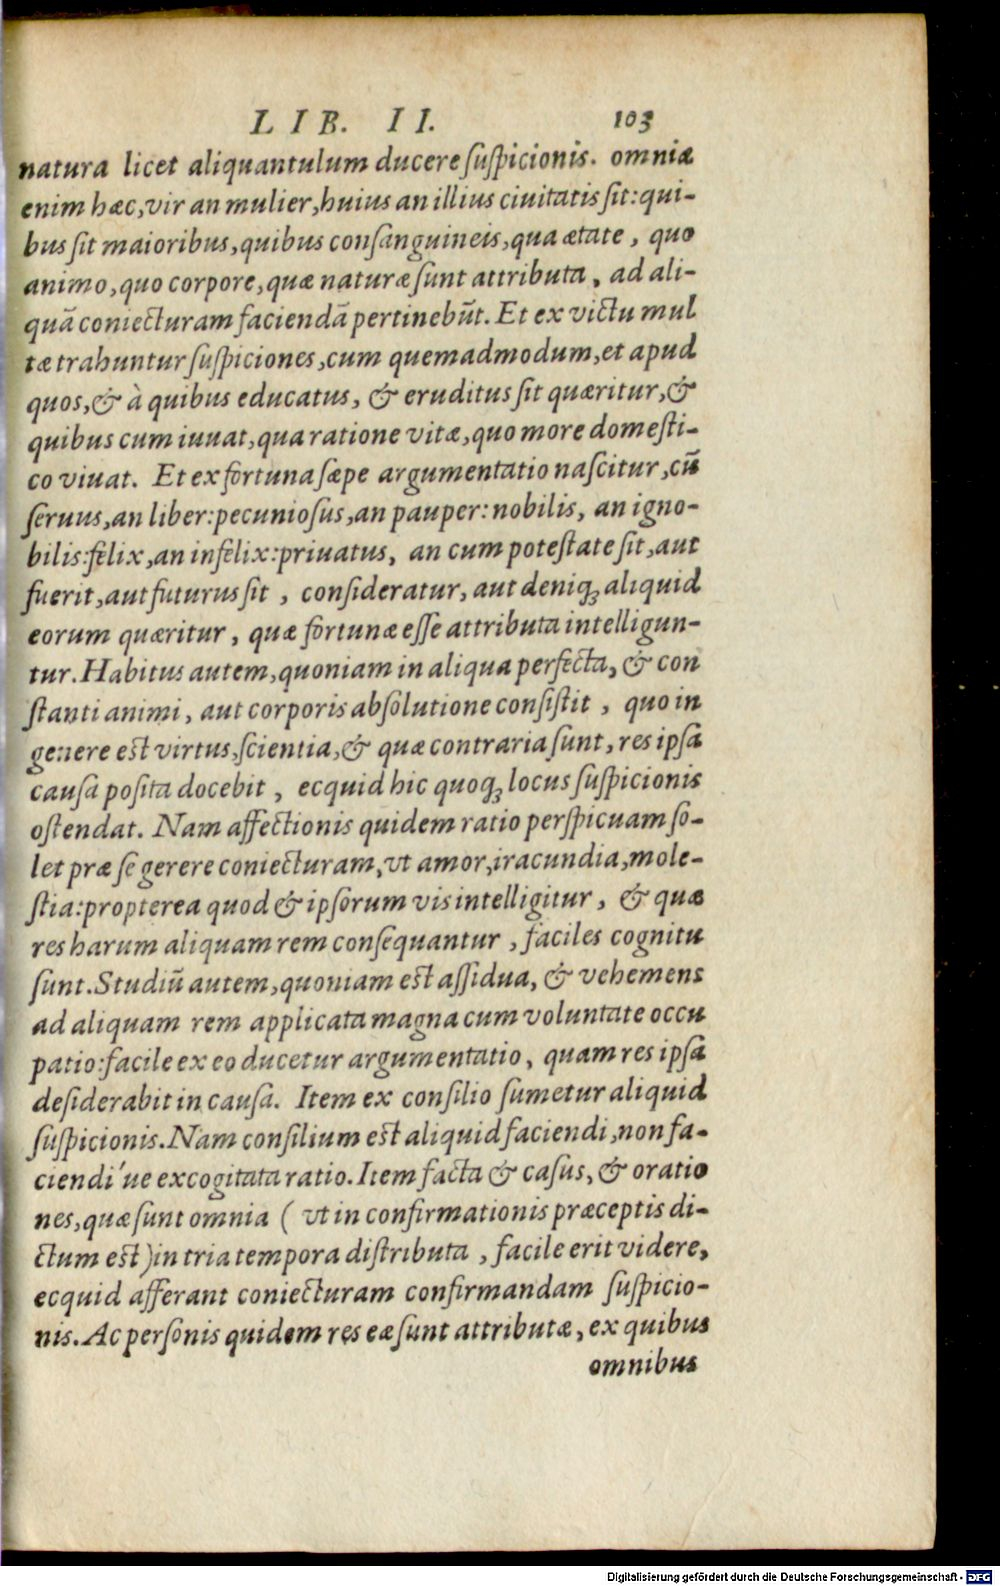 LIB. II. 103
natura licet aliquantulum ducere ſuſpicionis. omniæ
enim hæc, vir an mulier, huius an illius ciuitatis ſit: qui-
bus ſit maioribus, quibus conſanguineis, qua ætate, quo
animo, quo corpore, quæ naturæ ſunt attributa, ad ali-
quā coniecturam faciendā pertinebūt. Et ex victu mul
tæ trahuntur ſuſpiciones, cum quemadmodum, et apud
quos, & à quibus educatus, & eruditus ſit quæritur, &
quibus cum iuuat, qua ratione vitæ, quo more domeſti-
co viuat. Et ex fortuna ſæpe argumentatio naſcitur, cū
ſeruus, an liber: pecunioſus, an pauper: nobilis, an igno-
bilis: felix, an infelix: priuatus, an cum poteſtate ſit, aut
fuerit, aut futurus ſit, conſideratur, aut deniqꝫ aliquid
eorum quæritur, quæ fortunæ eſſe attributa intelligun-
tur. Habitus autem, quoniam in aliqua perfecta, & con
ſtanti animi, aut corporis abſolutione conſiſtit, quo in
genere eſt virtus, ſcientia, & quæ contraria ſunt, res ipſa
cauſa poſita docebit, ecquid hic quoqꝫ locus ſuſpicionis
oſtendat. Nam affectionis quidem ratio perſpicuam ſo-
let præ ſe gerere coniecturam, vt amor, iracundia, mole-
ſtia: propterea quod & ipſorum vis intelligitur, & quæ
res harum aliquam rem conſequantur, faciles cognitu
ſunt. Studiū autem, quoniam eſt aſſidua, & vehemens
ad aliquam rem applicata magna cum voluntate occu
patio: facile ex eo ducetur argumentatio, quam res ipſa
deſiderabit in cauſa. Item ex conſilio ſumetur aliquid
ſuſpicionis. Nam conſilium eſt aliquid faciendi, non fa-
ciendi've excogitata ratio. Item facta & caſus, & oratio
nes, quæ ſunt omnia ( vt in confirmationis præceptis di-
ctum eſt ) in tria tempora diſtributa, facile erit videre,
ecquid afferant coniecturam confirmandam ſuſpicio-
nis. Ac perſonis quidem res eæ ſunt attributæ, ex quibus
omnibus
Digitalisierung gefördert durch die Deutsche Forschungsgemeinschaft - DFG